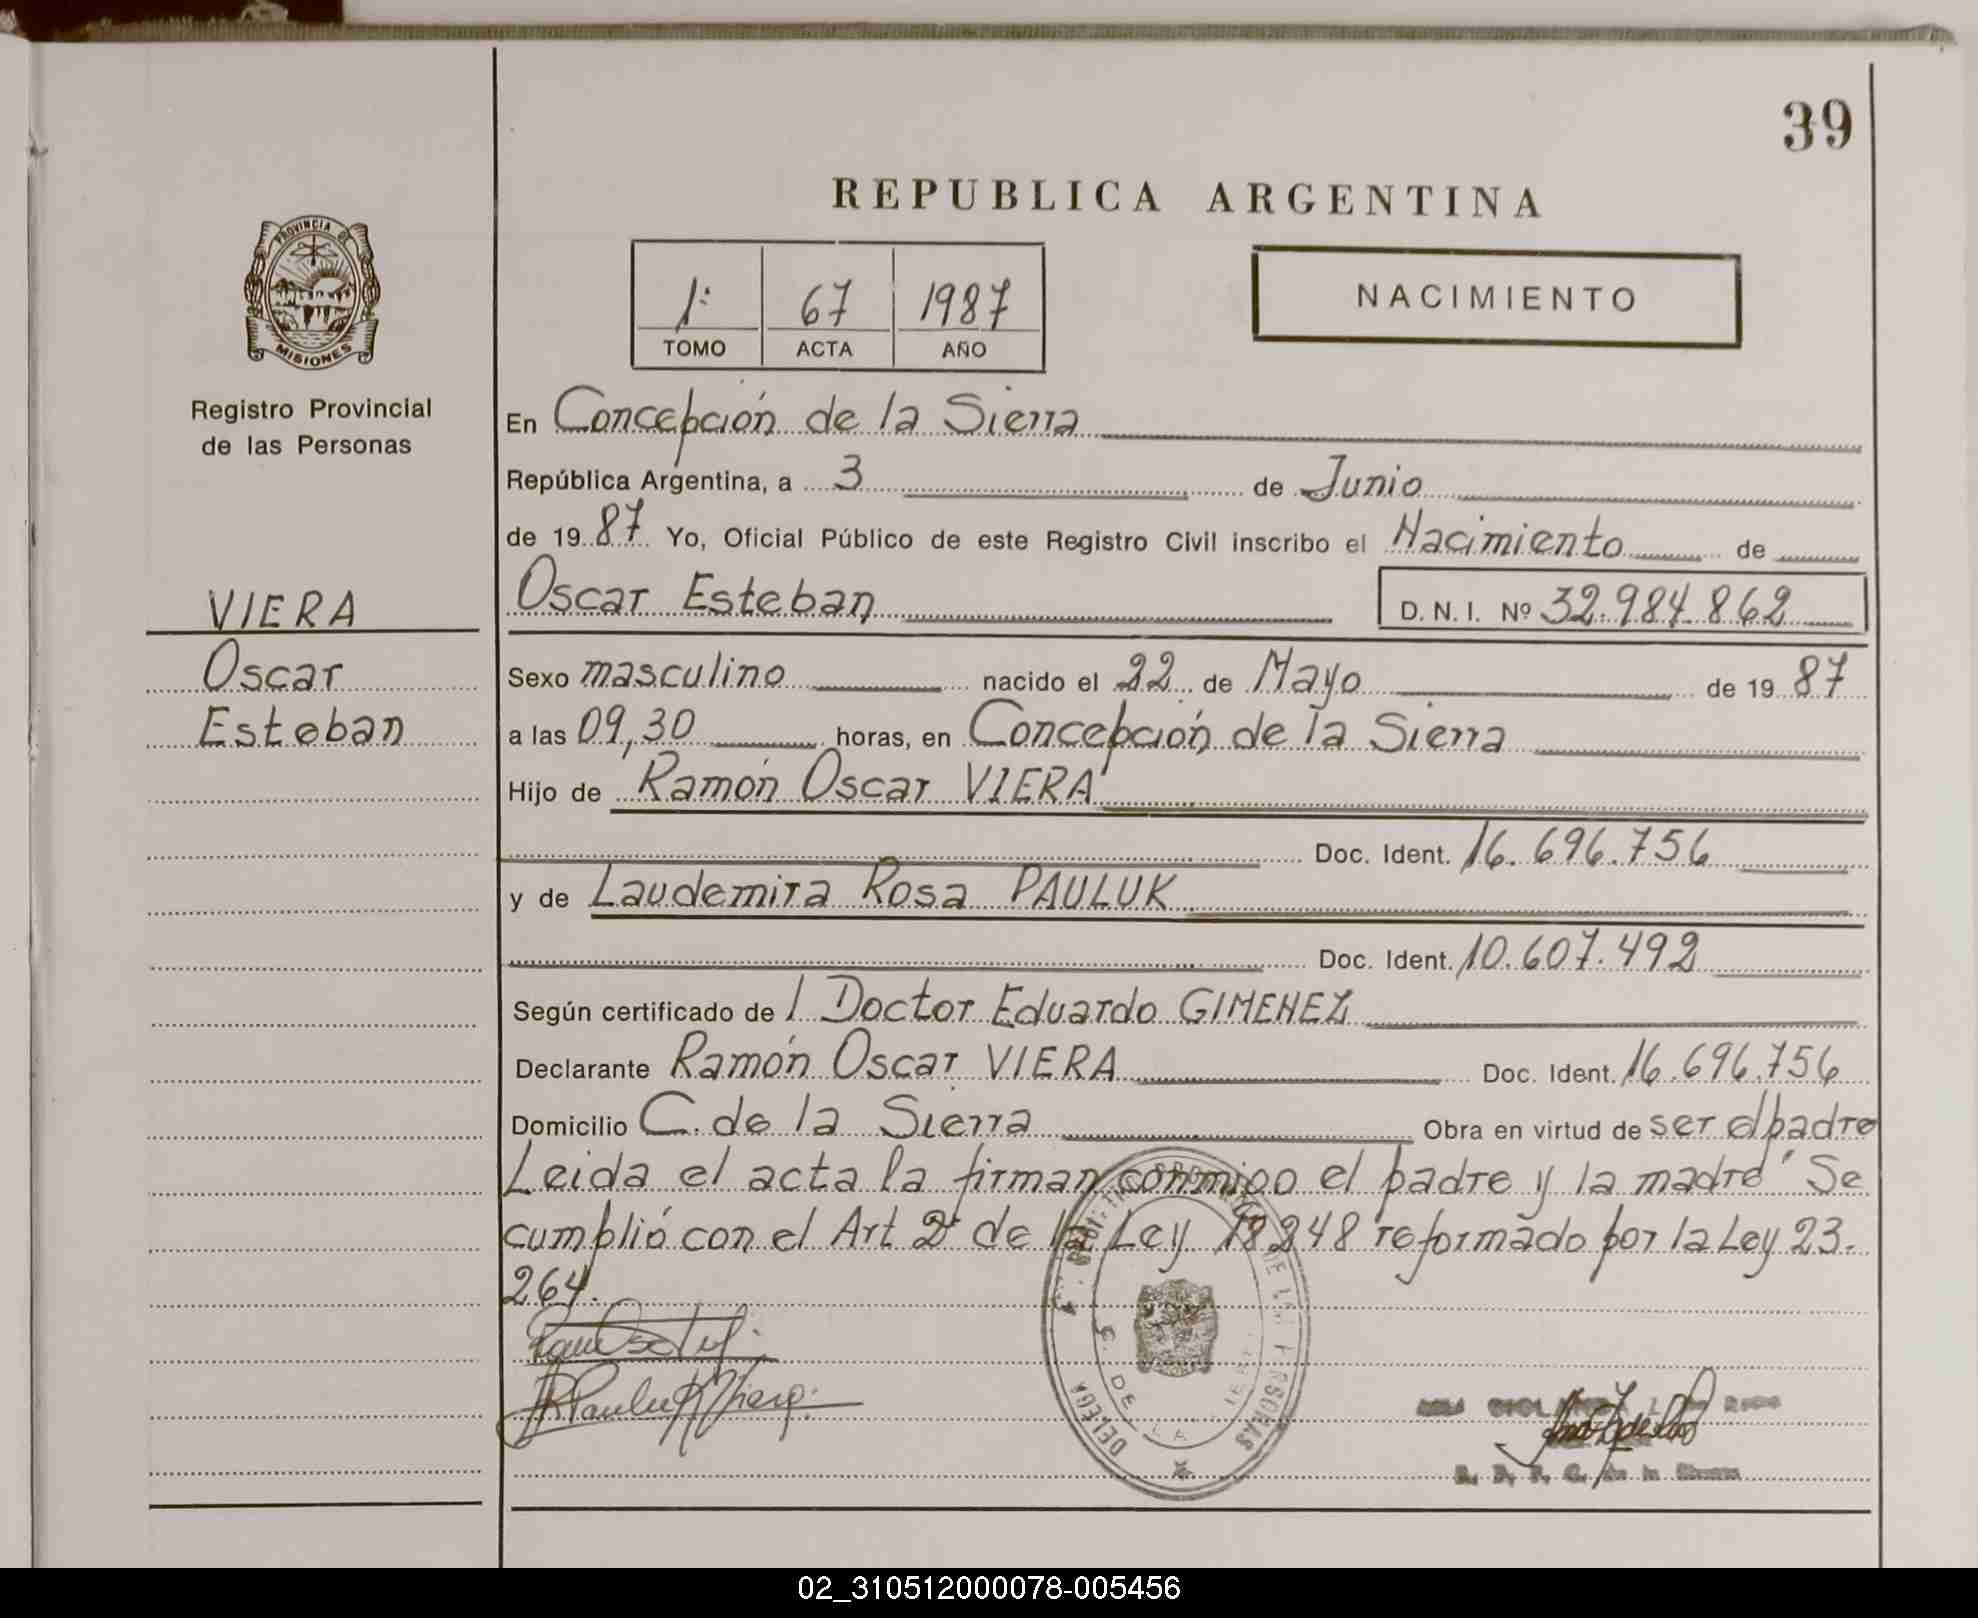 39
REPUBLICA ARGENTINA
PROVINCIA DE
MISIONES
Registro Provincial
de las Personas
1º 67 1987
TOMO ACTA AÑO
NACIMIENTO
En Concepción de la Sierra
República Argentina, a 3 de Junio
de 1987 Yo, Oficial Público de este Registro Civil inscribo el Nacimiento de
Oscar Esteban D. N. I. Nº 32.984.862
VIERA
Oscar
Esteban
Sexo masculino nacido el 22 de Mayo de 1987
a las 09,30 horas, en Concepción de la Sierra
Hijo de Ramón Oscar VIERA
Doc. Ident. 16.696.756
y de Laudemira Rosa PAULUK
Doc. Ident. 10.607.492
Según certificado de l Doctor Eduardo GIMENEZ
Declarante Ramón Oscar VIERA Doc. Ident. 16.696.756
Domicilio C. de la Sierra Obra en virtud de ser el padre
Leida el acta la firman conmigo el padre y la madre "Se
cumplió con el Art 2º de la Ley 18248 reformado por la Ley 23.
264.
DE LAS PERSONAS
DELEGA
C. DE LA
R. P. P. C. de la Sierra
02_310512000078-005456